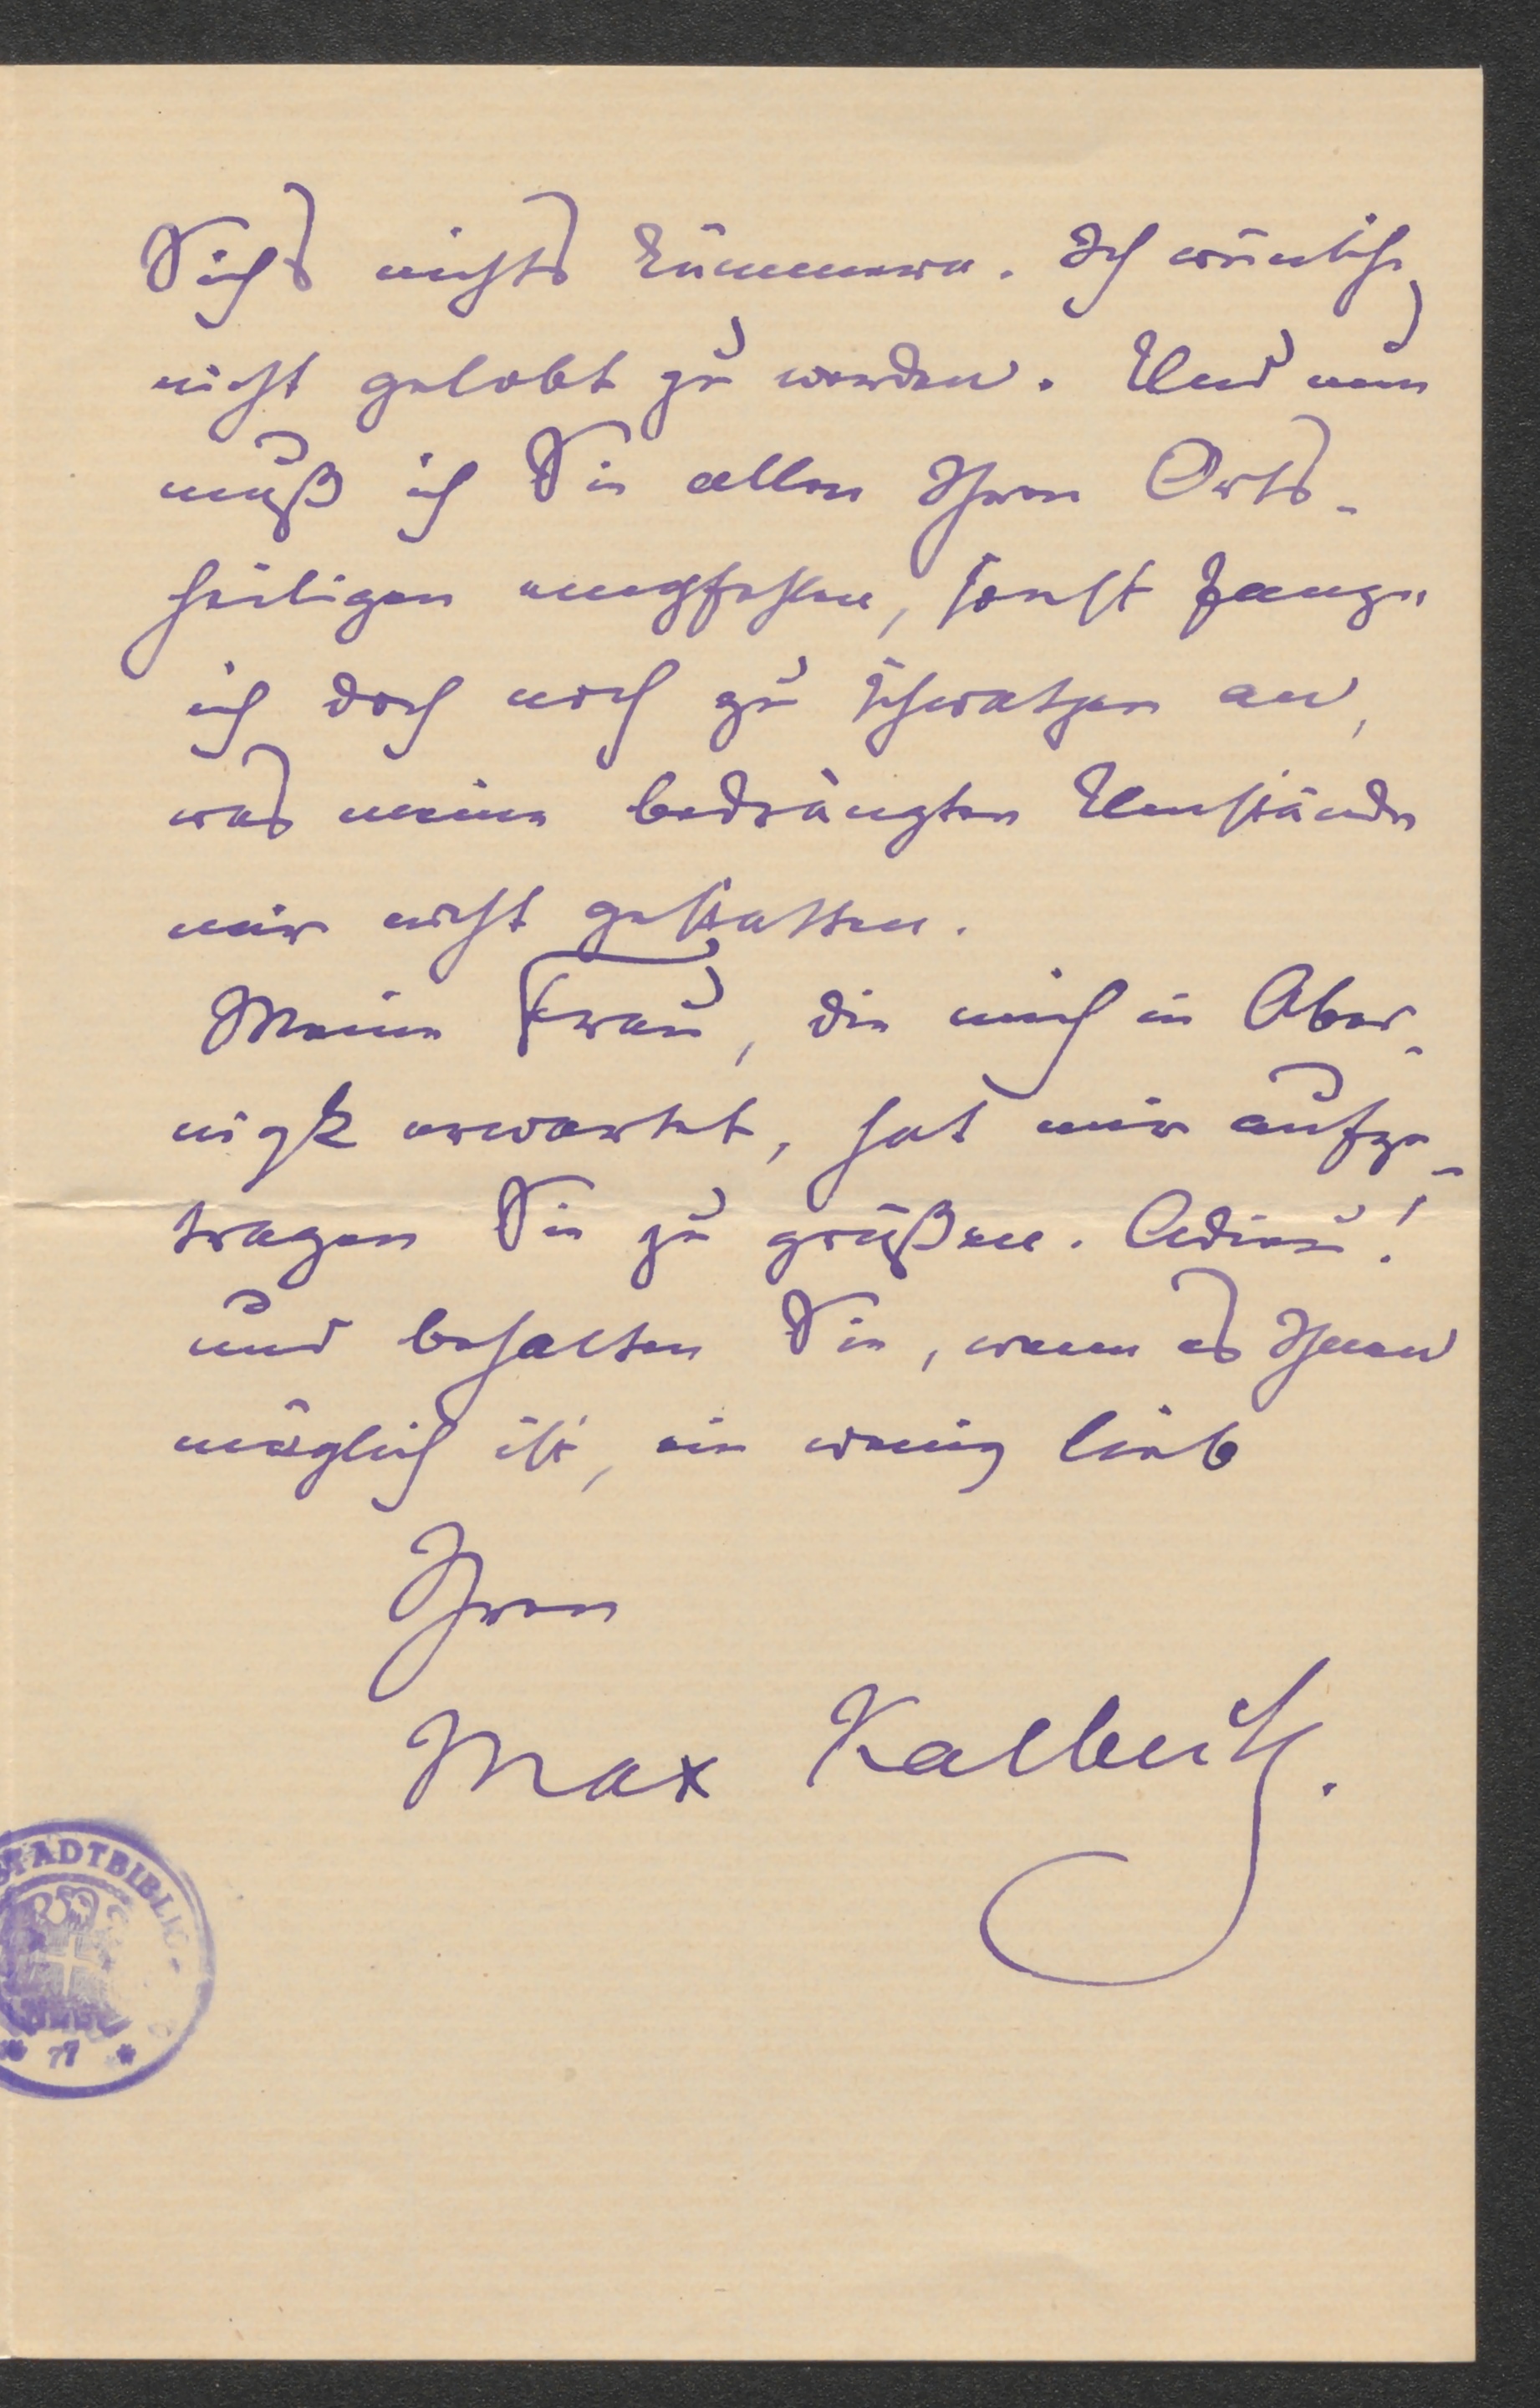 Sich's nichts kümmern. Ich wünsche
nicht gelobt zu werden. Und nun
muß ich Sie allen Ihren Orts-
heiligen empfehlen, sonst fange
ich doch noch zu schwatzen an,
was meine bedrängten Umstände
mir nicht gestatten.
Meine Frau, die mich in Ober-
nigk erwartet, hat mir aufge-
tragen Sie zu grüßen. Adieu!
und behalten Sie, wenn es Ihnen
möglich ist, ein wenig lieb
Ihren
Max Kalbeck.
STADTBIBLIO-
* 77 *